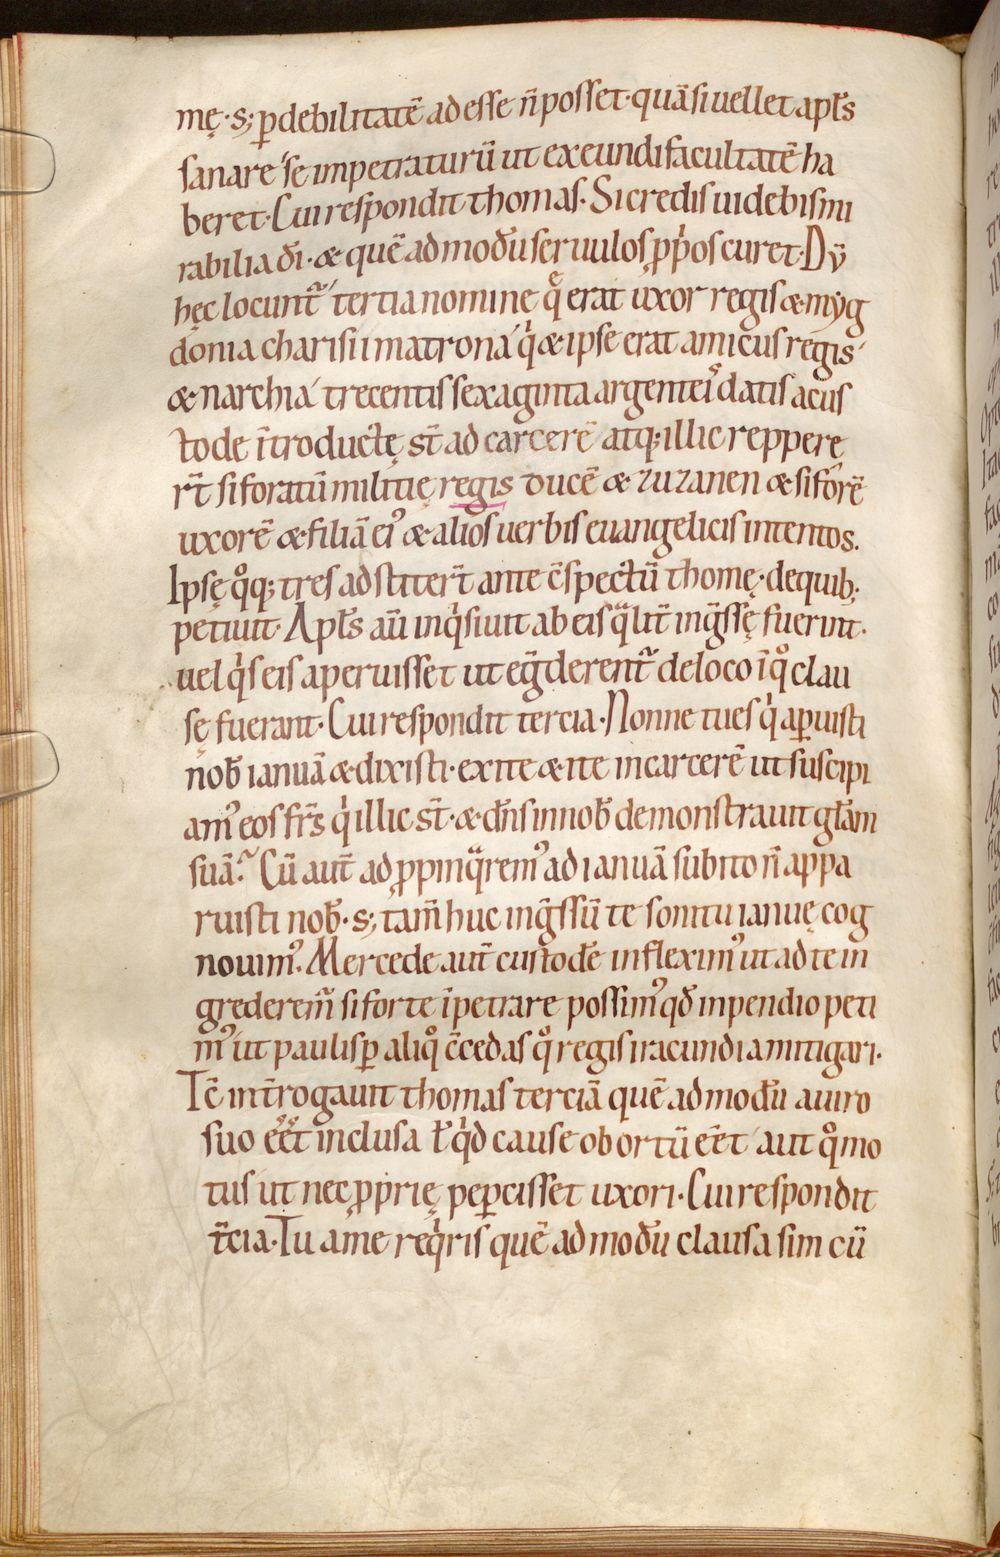 mę · s; ꝑ debilitatē adesse n̄ posset · quā si uellet apl̄s
sanare se impetraturū ut exeundi facultatē ha
beret · Cui respondit thomas · Si credis uidebis mi
rabilia dī · & quēadmodū seruulos ꝓprios curet · Dū
hęc locunt̄ tertia nomine quę erat uxor regis & myg
donia charisii matrona qͥ & ipse erat amicus regis
& narchia trecentis sexaginta argenteis datis a cus
tode ītroductę st̄ ad carcerē atq; illic reppere
rt̄ siforatū militię regis ducē & zuzanen & siforē
uxorē & filiā eiꝰ & alios uerbis euangelicis intentos.
Ipsę qͦq; tres adstiterт̄ ante c̄spectū thomę · de quib;
petiuit · Apl̄s aū inqͥsiuit ab eis qͣlit̄ ingͣssę fuerint ·
uel qͥs eis aperuisset ut egͣderent̄ de loco ī qͦ clau
sę fuerant · Cui respondit tercia · Nonne tu es qͥ aꝑuisti
nob̄ ianuā & dixisti · exite & ite in carcerē ut suscipi
amꝰ eos fr̄s qͥ illic st̄ · & dn̄s in nob̄ demonstrauit gl̄am
suā? Cū aut̄ adꝓpinqͣremꝰ ad ianuā subito n̄ appa
ruisti nob̄ · s; tam̄ huc ingͣssū te sonitu ianuę cog
nouimꝰ. Mercede aut̄ custodē infleximꝰ ut ad te in
grederem̄ si forte īpetrare possimꝰ qd̄ inpendio peti
mꝰ ut paulisꝑ aliqͦ c̄cedas qͦ regis iracundia mitigari ·
Tc̄ int̄rogauit thomas terciā quēadmodū a uiro
suo eēt inclusa ł qͥd cause obortū eēt aut qͦmo
tus ut nec ꝓprię peꝑcisset uxori · Cui respondit
t̄cia · Tu a me reqͥris quēadmodū clausa sim cū